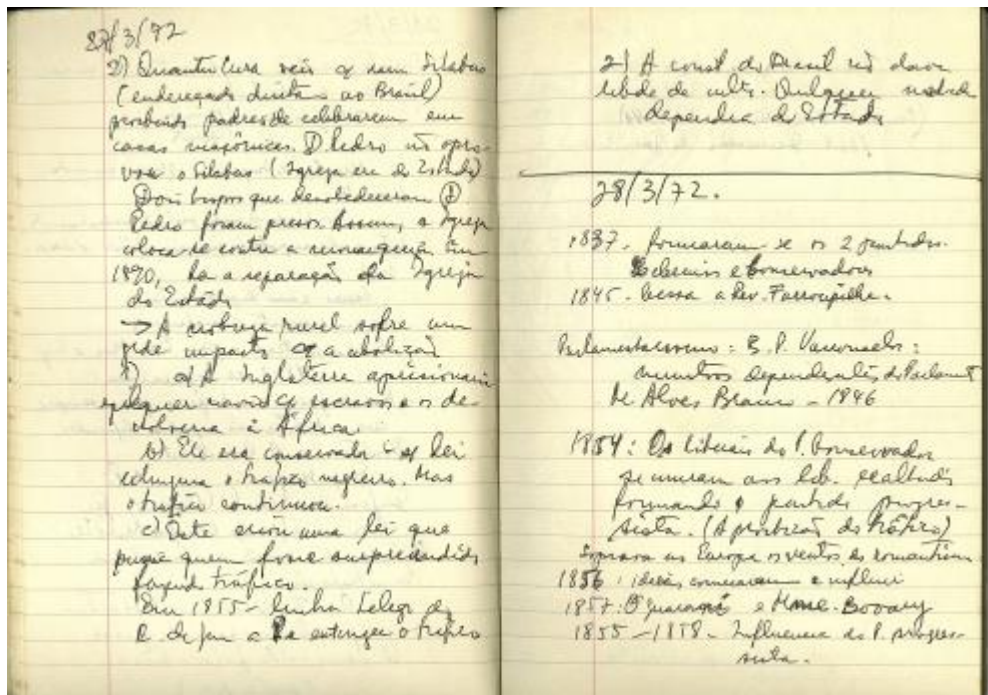 27/3/72
2) Quanta Cura veio c/ um Silabus
(endereçado diretam ao Brasil)
proibindo padres de celebrarem em
casas maçônicas. D. Pedro não apro-
vou o Silabus (Igreja era do Estado)
Dois bispos que desobedeceram D.
Pedro foram presos. Assim, a Igreja
coloca-se contra a monarquia. Em
1890, há a separação da Igreja
do Estado
→ A nobreza rural sofre um
gde impacto c/ a abolição
a) A Inglaterra aprisionaria
qualquer navio c/ escravos e os de-
volveria à África.
b) Ele era conservador lei
extinguia o tráfico negreiro. Mas
o tráfico continuou.
c) Este criou uma lei que
pune quem fosse surpreendido
fazendo tráfico.
Em 1855 - linha Telegr de
R. de Jan a extingue o tráfico
2) A const. do Brasil não dava
libde de culto. Qualquer
dependia do Estado
28/3/72.
1837. formaram-se os 2 partidos.
Liberais e Conservadores
1845. Cessa a Rev. Farroupilha.
Parlamentarismo: B. P. Vasconcelos:
ministros dependentes do Parlamento
M. Alves Branco - 1846
1854: Os liberais do P. Conservador
se uniram aos lib. exaltados
formando o partido progres-
sista. (A proibição do tráfico)
Soprava na Europa os ventos do romantism
1856: ideias começaram a influir
1857: O Guarani e Mme. Bovary
1855-1858 - Influencia do P. progres-
sista.